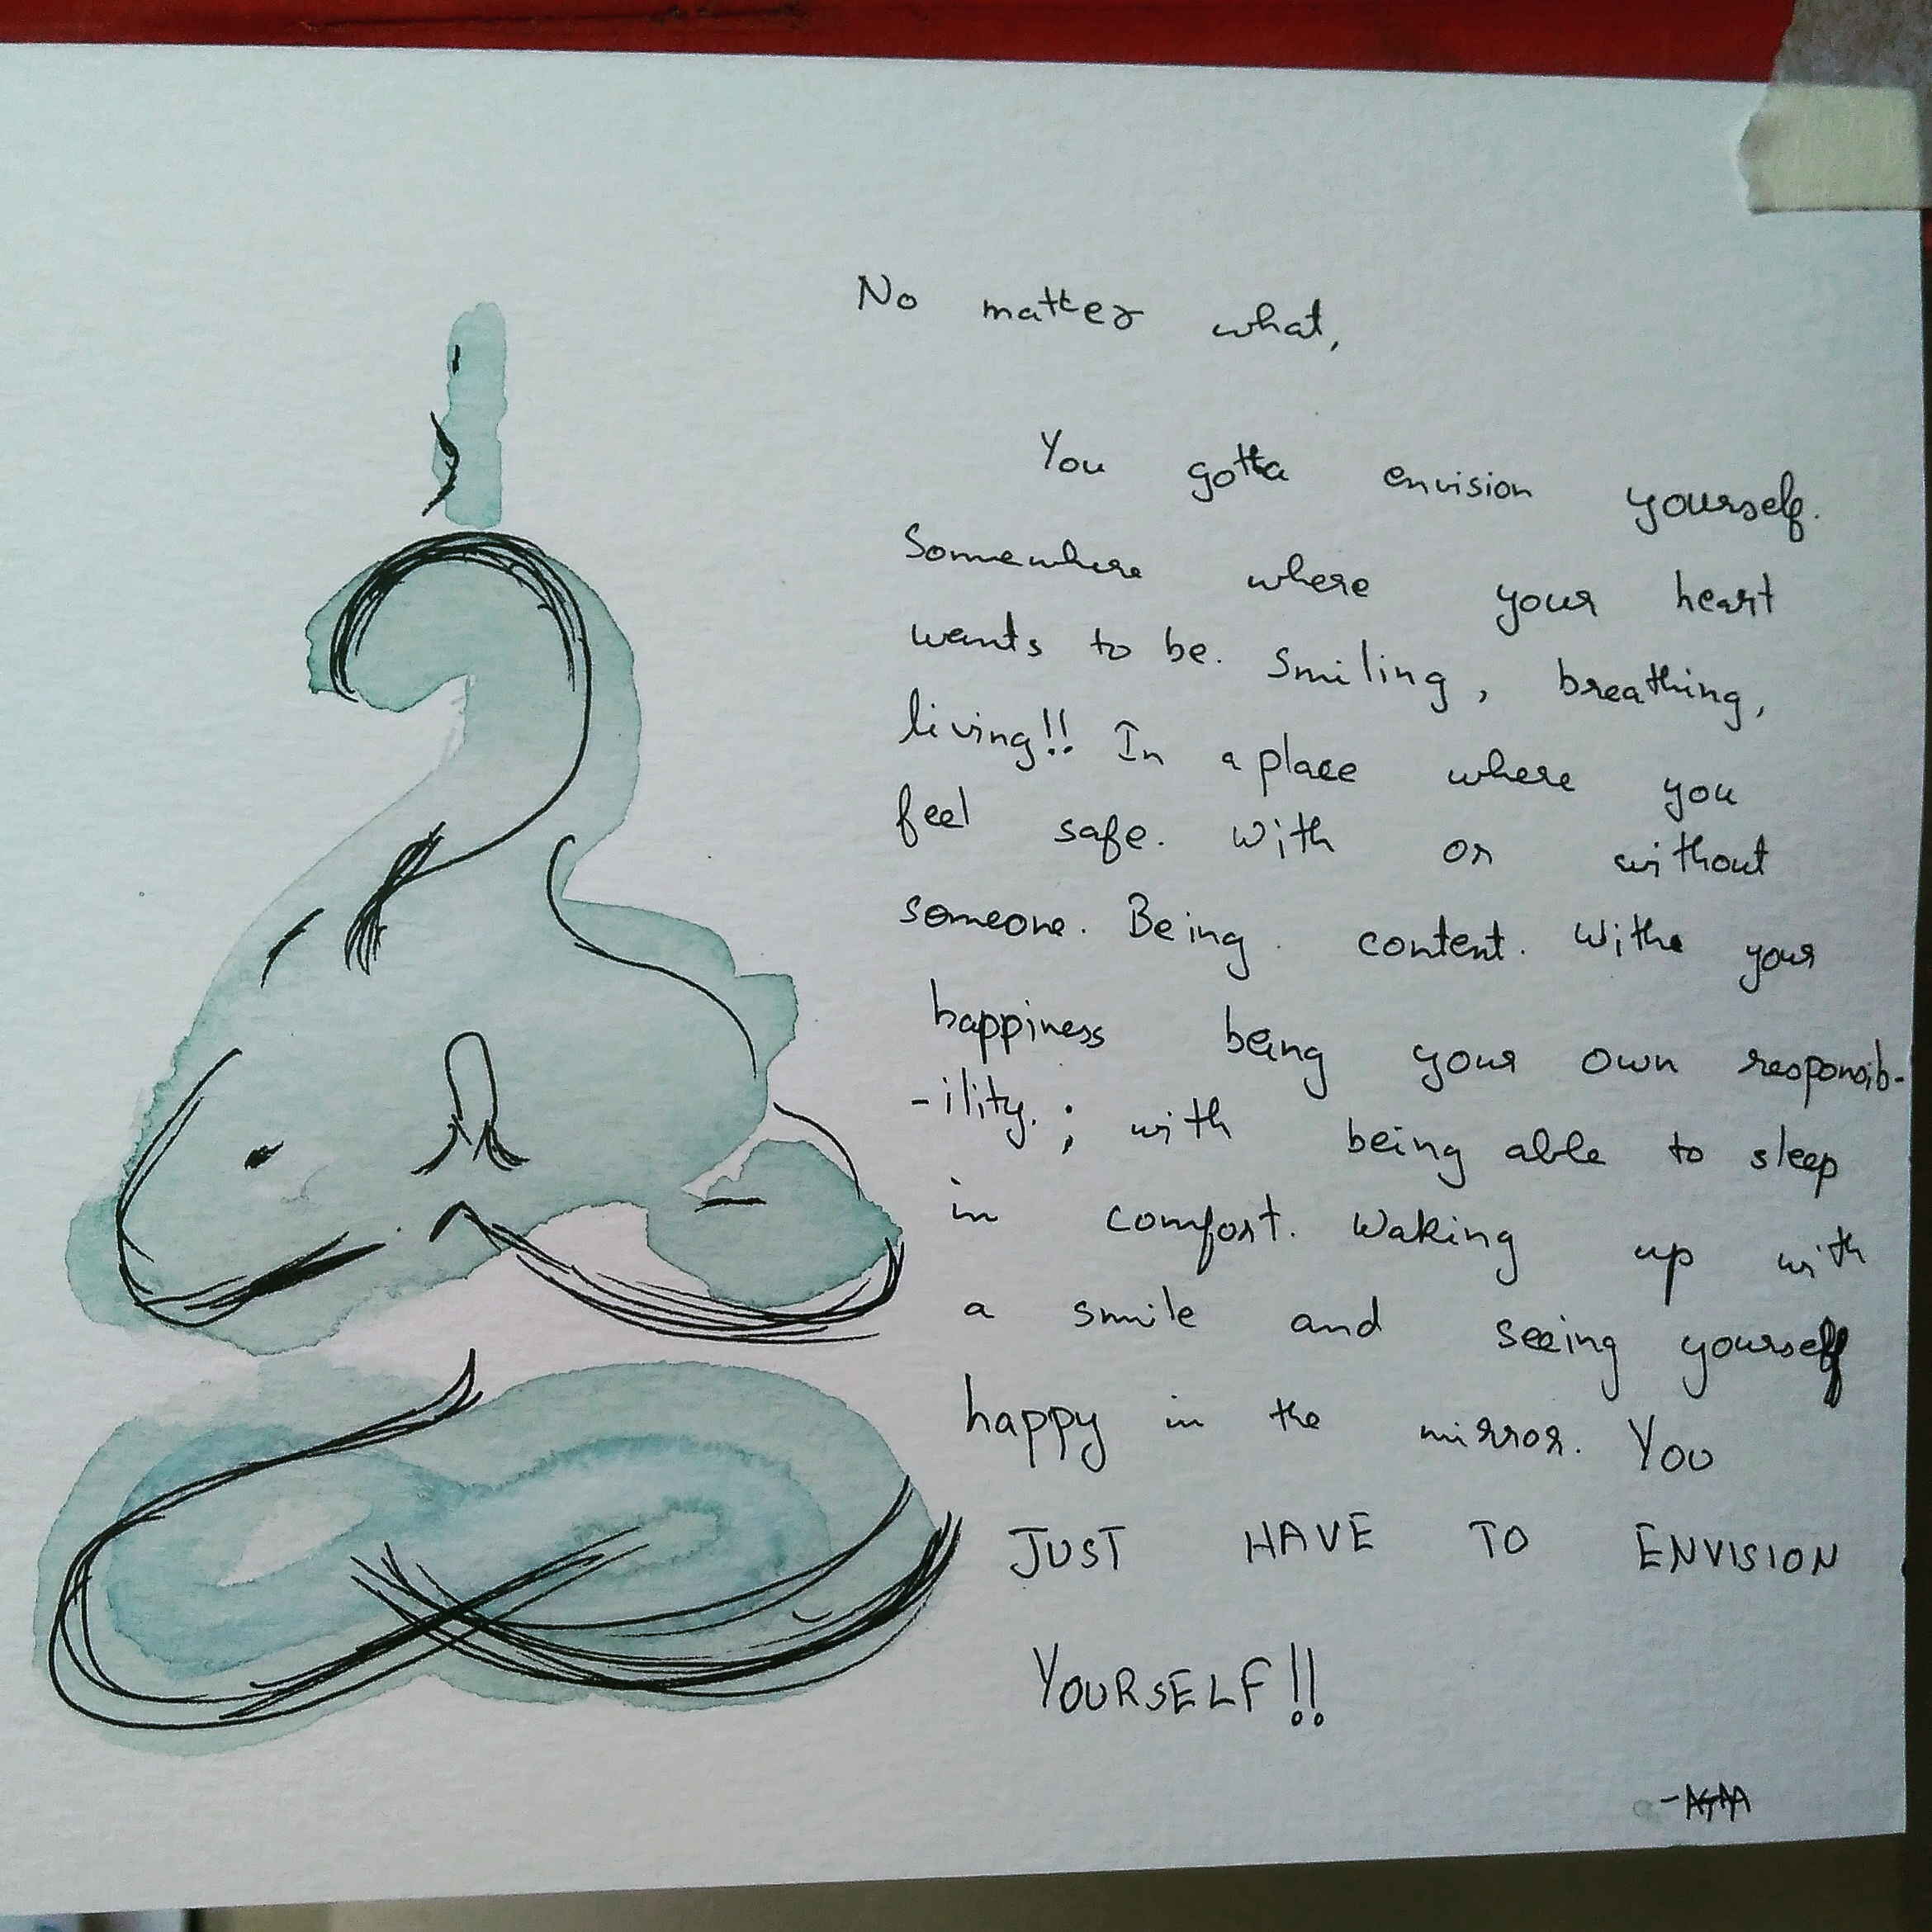 No matter what,
You gotta envision yourself.
Somewhere where your heart
wants to be. Smiling, breathing,
living!! In a place where you
feel safe. With or without
someone. Being. content. Withe your
happiness being your own responsib-
-ility. ; with being able to sleep
in comfort. Waking up with
a smile and seeing yourself
happy in the mirror. You
JUST HAVE TO ENVISION
YOURSELF!!